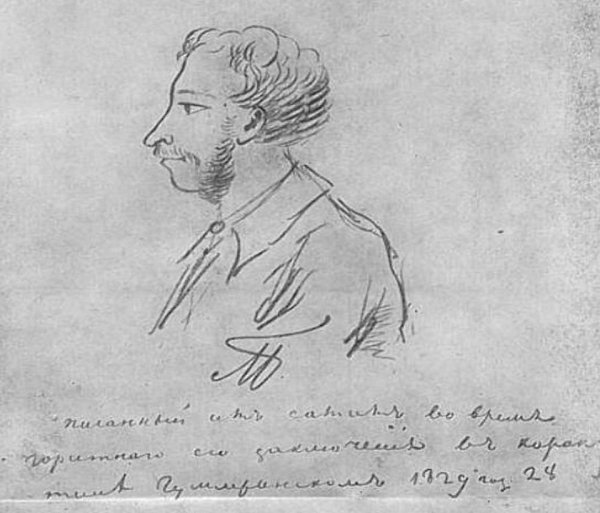 писанный имъ самимъ во время
горестнаго его заключенія въ каран
тинѣ Гумранскомъ 1829 год. 28